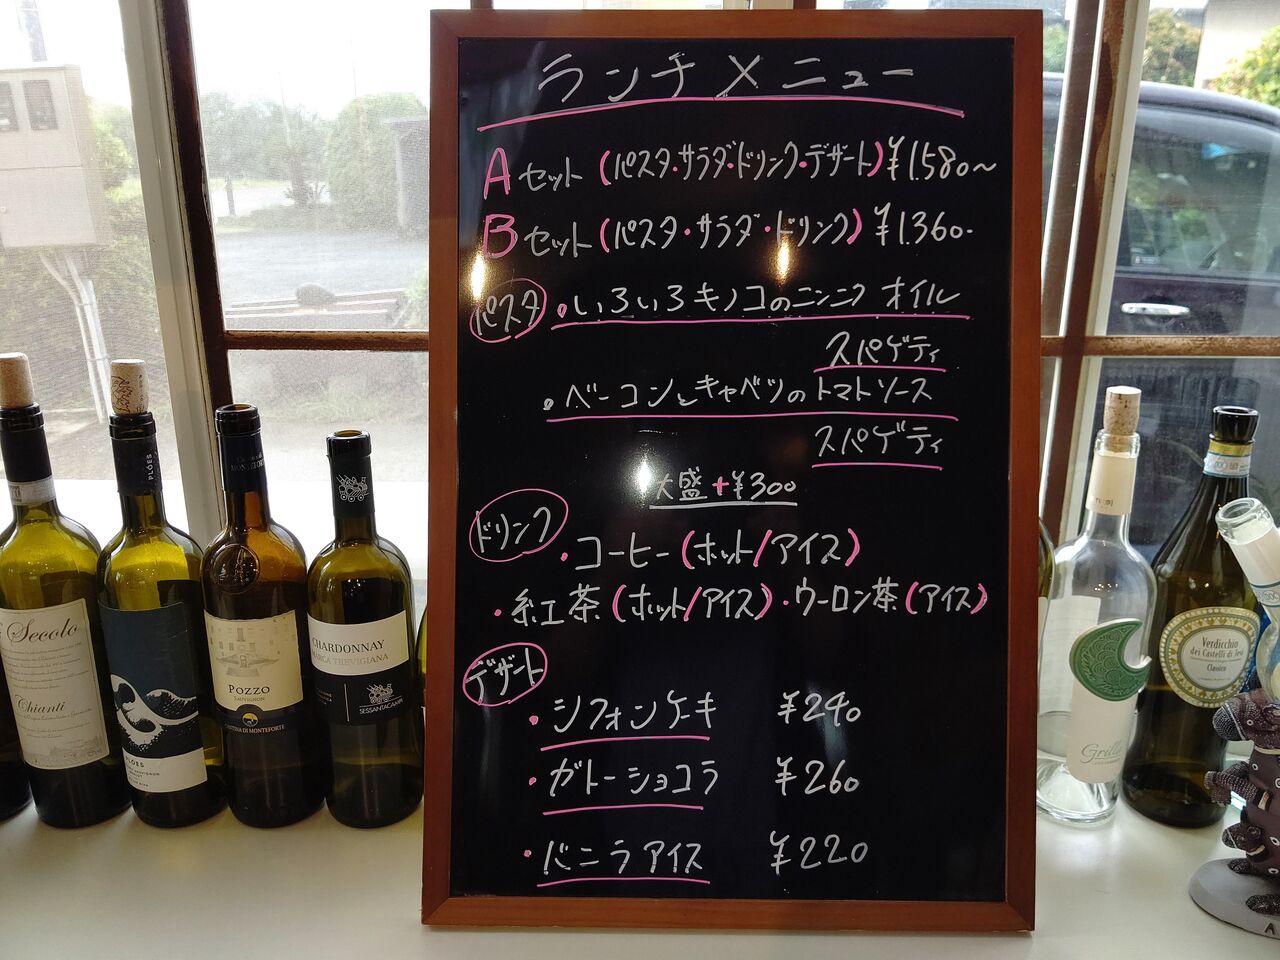 ランチメニュー
Aセット(パスタ・サラダ・ドリンク・デザート)¥1.580~
Bセット(パスタ・サラダ・ドリンク)¥1.360-
パスタ ・いろいろキノコのニンニクオイル
スパゲティ
・ベーコンとキャベツのトマトソース
スパゲティ
大盛+¥300
ドリンク
・コーヒー(ホット/アイス)
・紅茶(ホット/アイス)・ウーロン茶(アイス)
デザート
・シフォンケーキ ¥240
・ガトーショコラ ¥260
・バニラアイス ¥220
Secolo
Chianti
PLÓES
POZZO
SAUVIGNON
CANTINA DI MONTEFORTE
CHARDONNAY
MARCA TREVIGIANA
SESSANTACAMPI
Grillo
Verdicchio
dei Castelli di Jesi
Classico